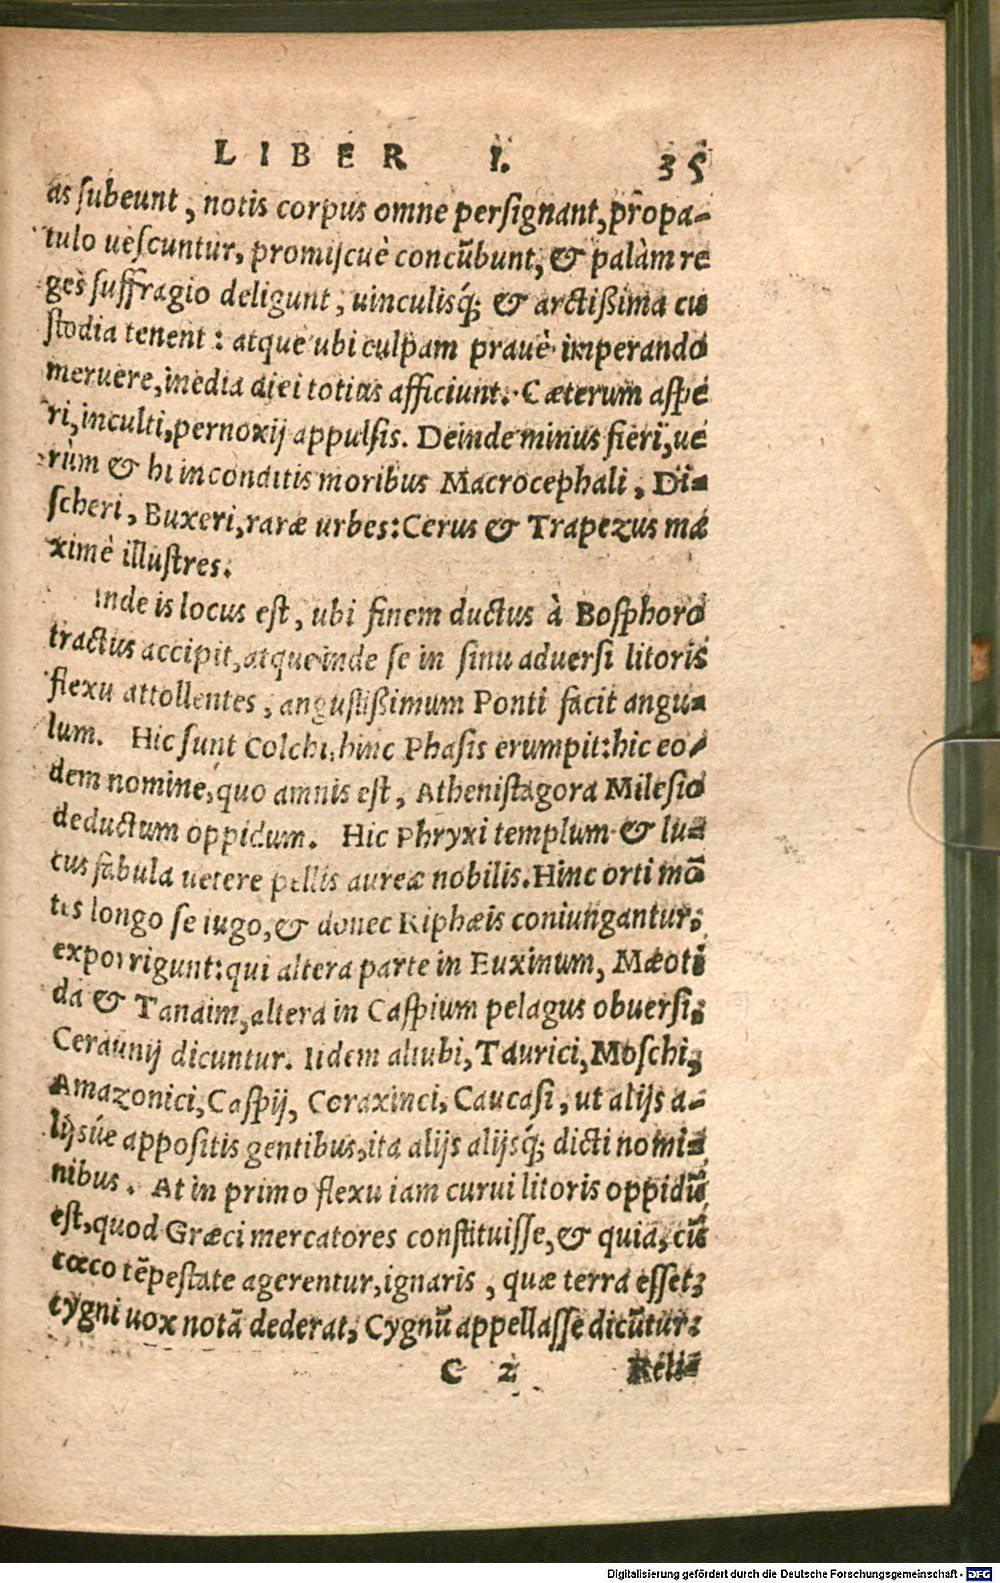 LIBER I. 35
as subeunt, notis corpus omne persignant, propa-
tulo uescuntur, promiscuè concūbunt, & palàm re
ges suffragio deligunt, uinculisq; & arctißima cu
stodia tenent: atque ubi culpam prauè imperando
meruere, inedia diei totius afficiunt. Cæterum aspe
ri, inculti, pernoxij appulsis. Deinde minus fieri, ue
rùm & hi inconditis moribus Macrocephali, Di-
scheri, Buxeri, raræ urbes: Cerus & Trapezus ma
ximè illustres.
Inde is locus est, ubi finem ductus à Bosphoro
tractus accipit, atque inde se in sinu aduersi litoris
flexu attollentes, angustißimum Ponti facit angu-
lum. Hic sunt Colchi, hinc Phasis erumpit: hic eo-
dem nomine, quo amnis est, Athenistagora Milesio
deductum oppidum. Hic Phryxi templum & lu-
cus fabula uetere pellis aureæ nobilis. Hinc orti mō
tes longo se iugo, & donec Riphæis coniungantur,
exporrigunt: qui altera parte in Euxinum, Mæoti
da & Tanaim, altera in Caspium pelagus obuersi,
Ceraunij dicuntur. Iidem aliubi, Taurici, Moschi,
Amazonici, Caspij, Coraxinci, Caucasi, ut alijs a-
lijsúe appositis gentibus, ita alijs alijsq́; dicti nomi-
nibus. At in primo flexu iam curui litoris oppidū
est, quod Græci mercatores constituisse, & quia, cū
cæco tēpestate agerentur, ignaris, quæ terra esset,
cygni uox notā dederat, Cygnū appellasse dicūtur.
C 2 Reli-
Digitalisierung gefördert durch die Deutsche Forschungsgemeinschaft - DFG